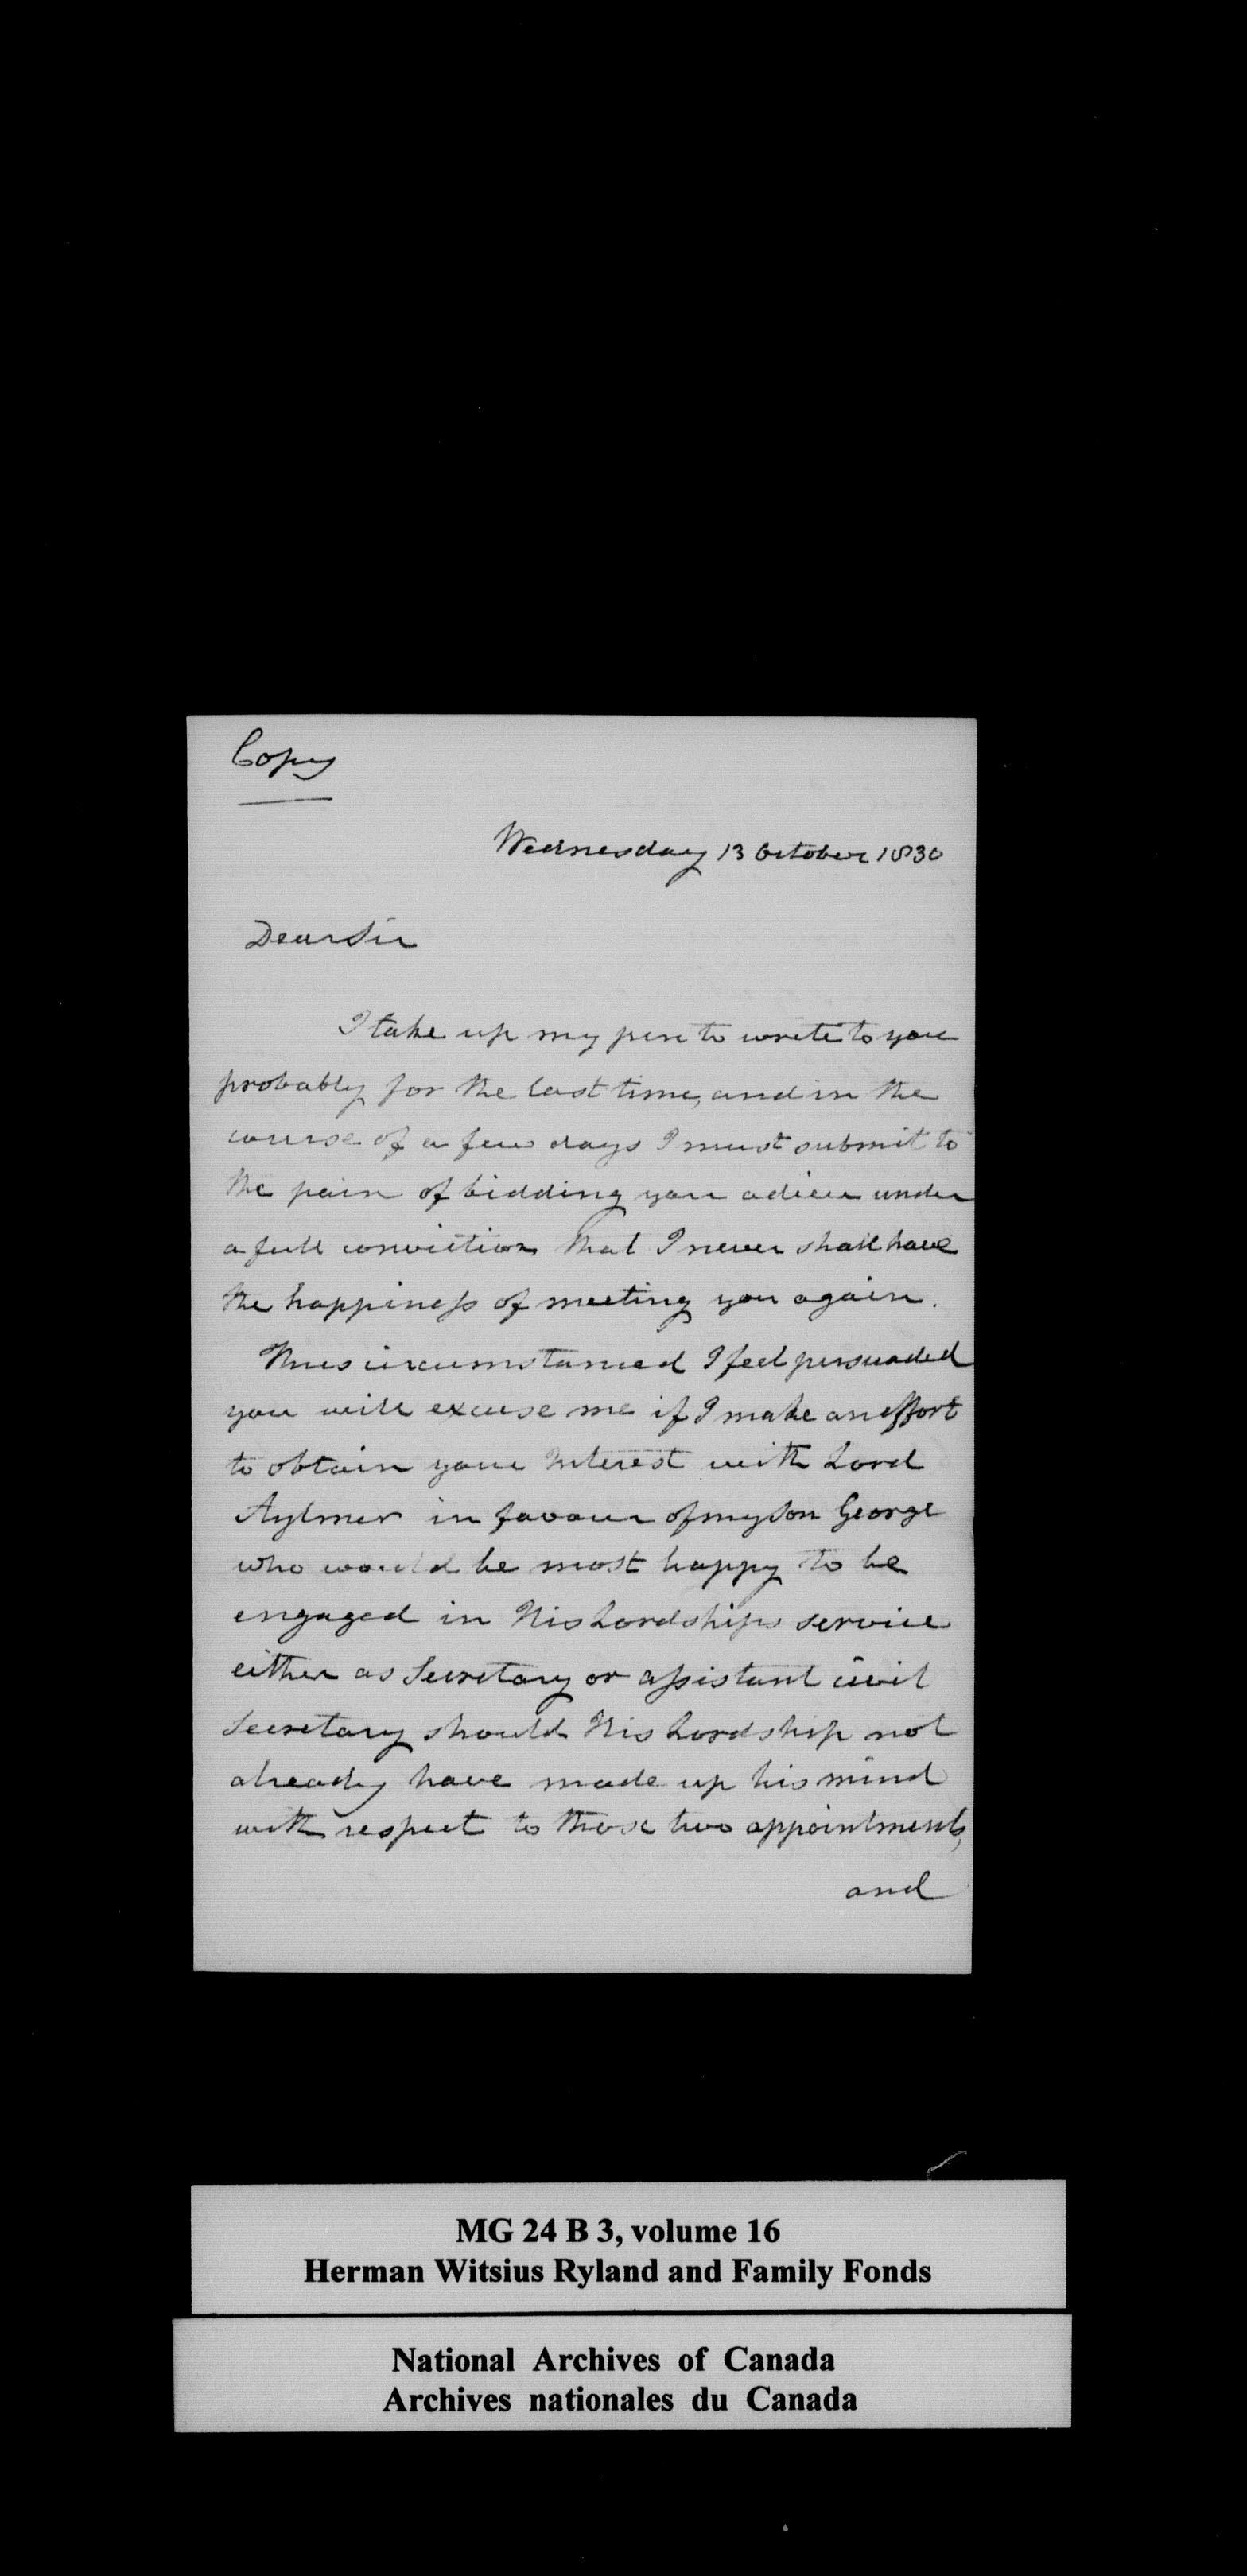 Copy
Wednesday 13 October 1830
Dear Sir
I take up my pen to write to you
probably for the last time, and in the
course of a few days I must submit to
the pain of bidding you adieu under
a full conviction that I never shall have
the happiness of meeting you again.
Thus circumstanced I feel persuaded
you will excuse me if I make an effort
to obtain your Interest with Lord
Aylmer in favour of my Son George
who would be most happy to be
engaged in His Lordships service
either as Secretary or assistant civil
Secretary should His Lordship not
already have made up his mind
with respect to those two appointments,
and
MG 24 B 3, volume 16
Herman Witsius Ryland and Family Fonds
National Archives of Canada
Archives nationales du Canada